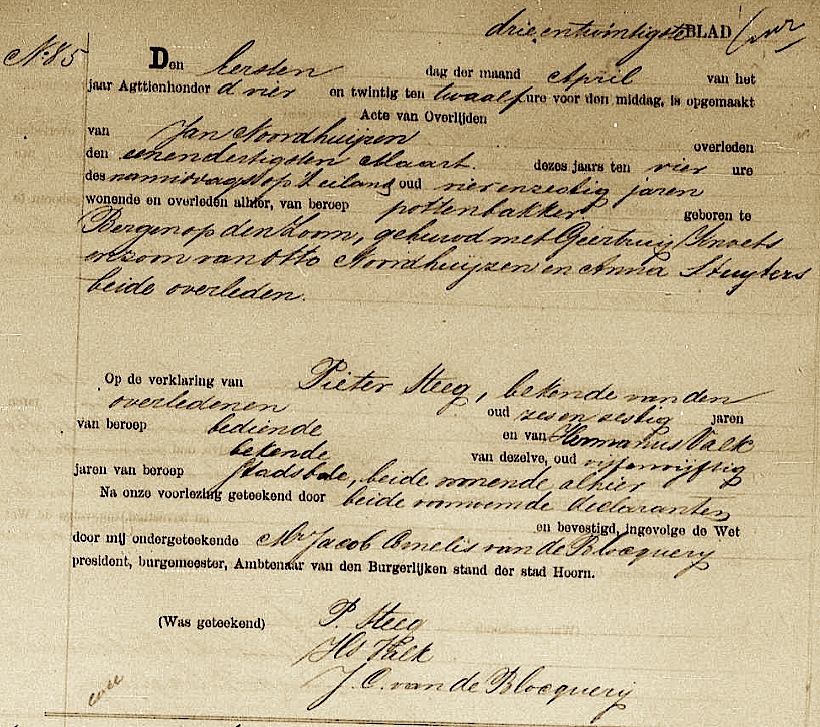 drieentwintigste BLAD
No. 85
Den Eersten dag der maand April van het
jaar Agttienhonder d vier en twintig ten twaalf ure voor den middag, is opgemaakt
Acte van Overlijden
van Jan Noordhuijzen overleden
den eenendertigsten Maart dezes jaars ten vier ure
des namiddags op 't eiland oud vierenzestig jaren
wonende en overleden alhier, van beroep pottenbakker geboren te
Bergen op den Zoom, gehuwd met Geertruij
en zoon van Otto Noordhuijzen en Anna Stuyters
beide overleden.
Op de verklaring van Pieter Steeg, bekende van den
overledenen oud zes en zestig jaren
van beroep bediende en van Hermanus Valk
bekende van dezelve, oud vijfenvijftig
jaren van beroep Stadsbode, beide wonende alhier
Na onze voorlezing geteekend door beide vornoemde declaranten
en bevestigd, ingevolge de Wet
door mij ondergeteekende Mr Jacob Cornelis van de Blocquery
president, burgemeester, Ambtenaar van den Burgerlijken stand der stad Hoorn.
(Was geteekend) P. Steeg
Hs Valk
J. C. van de Blocquery